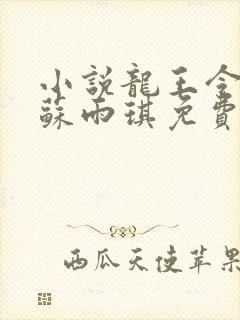 小說龍王令
蘇雨琪免費
西瓜天使苹果